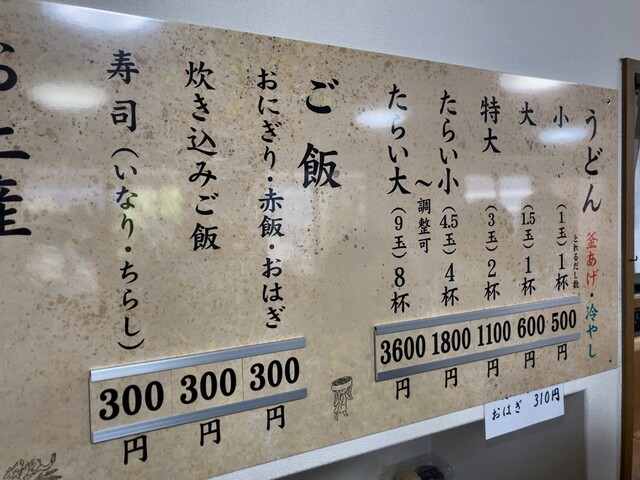 うどん 釜あげ・冷やし
とれるだし数
小(1玉)1杯 500円
大(1.5玉)1杯 600円
特大(3玉)2杯 1100円
たらい小(4.5玉)4杯 1800円
〜調整可
たらい大(9玉)8杯 3600円
ご飯
おにぎり・赤飯・おはぎ 300円
炊き込みご飯 300円
寿司(いなり・ちらし) 300円
お土産
おはぎ 310円